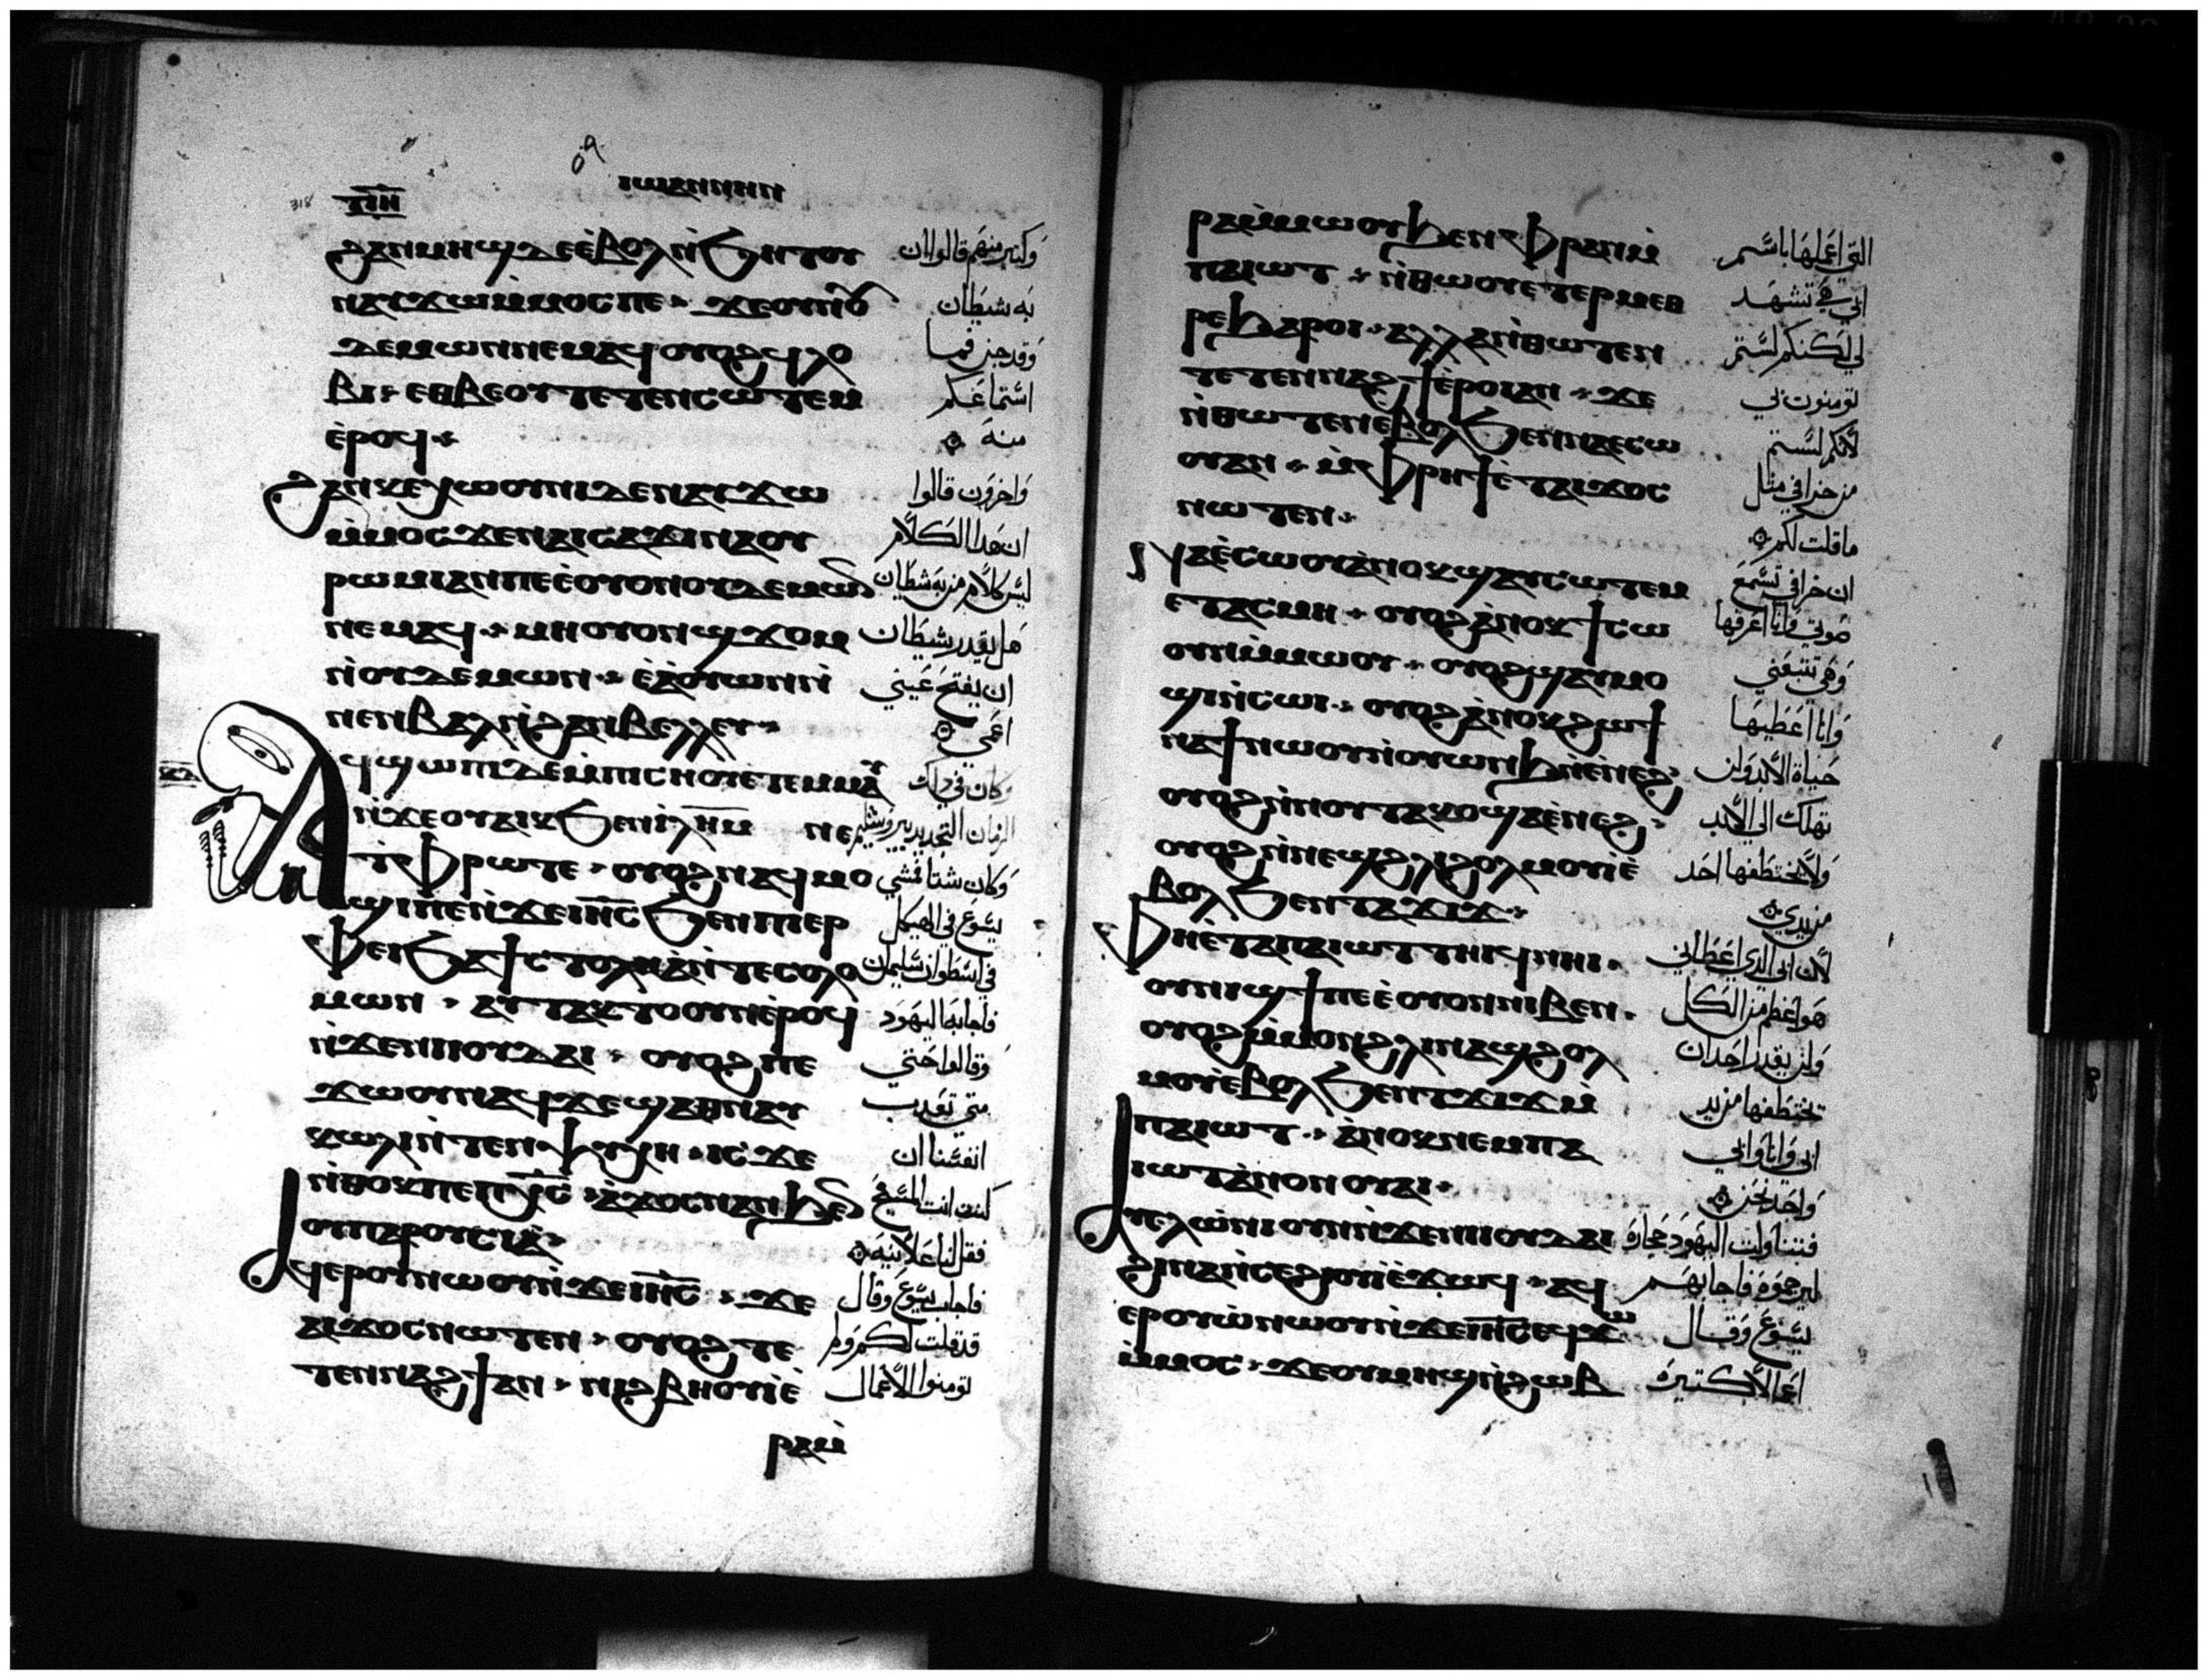 ⲓⲱⲁⲛⲛⲏⲛ
318 ⲧⲓⲏ
ϩⲁⲛⲙⲏϣ ⲇⲉ ⲉ̀ⲃⲟⲗ ⲛ̀ϧⲏⲧⲟⲩ وكثير منهم قالوا ان
ⲛⲁⲩϫⲱ ⲙ̀ⲙⲟⲥ ⲡⲉ ϫⲉ ⲟⲩⲛ̀ⲟⲩ به شيطان
ⲇⲉⲙⲱⲛ ⲛⲉⲙⲁϥ ⲟⲩⲟϩ ϥⲗⲟ وقد جن فما
ⲃⲓ ⲉⲑⲃⲉⲟⲩ ⲧⲉⲧⲉⲛⲥⲱⲧⲉⲙ استماعكم
ⲉ̀ⲣⲟϥ منه
ϩⲁⲛⲕⲉⲭⲱⲟⲩⲛⲓ ⲇⲉ ⲛⲁⲩϫⲱ واخرون قالوا
ⲙ̀ⲙⲟⲥ ϫⲉ ⲛⲁⲓⲥⲁϫⲓ ⲛⲁⲟⲩ ان هدا الكلام
ⲣⲱⲙⲓ ⲁⲛ ⲡⲉ ⲉ̀ⲟⲩⲟⲛ ⲟⲩⲇⲉⲙⲱⲛ ليس كلام من به شيطان
ⲛⲉⲙⲁϥ ⲙⲏ ⲟⲩⲟⲛϣϫⲟⲙ هل يقدر شيطان
ⲛ̀ⲟⲩⲇⲉⲙⲱⲛ ⲉ̀ⲁ̀ⲟⲩⲱⲛ ⲛ̀ ان يفتح عيني
ⲛⲉⲛⲃⲁⲗ ⲛ̀ϩⲁⲛⲃⲉⲗⲗⲉⲩ اعمي
ⲁϥϣⲱⲡⲓ ⲇⲉ ⲙ̀ⲡⲓⲥⲏⲟⲩ ⲉ̀ⲧⲉⲙⲙⲁⲩ كان في داك
ⲛ̀ϫⲉ ⲟⲩⲁⲓⲕ ϧⲉⲛ ⲓ̀ⲗⲏⲙ ⲛⲉ الزمان التجديد بيروشليم
ⲧ̀ⲫⲣⲱ ⲧⲉ ⲟⲩⲟϩ ⲛⲁϥⲙⲟ وكان شتا فمشي
ϣⲓ ⲡⲉ ⲛ̀ϫⲉ ⲓⲏⲥ ϧⲉⲛ ⲡⲓⲉⲣ يسوع في الهيكل
ⲫⲉⲓ ϧⲁ ϯⲥⲧⲟⲗⲏ ⲁ̀ ⲛ̀ⲧⲉ ⲥⲟⲗⲟ في اسطوان سليمان
ⲙⲱⲛ ⲁⲩⲧⲁⲕⲧⲟ ⲟⲩⲛ ⲉ̀ⲣⲟϥ فاحابه اليهود
ⲛ̀ϫⲉ ⲛⲓⲓⲟⲩⲇⲁⲓ ⲟⲩⲟϩ ⲛⲉ وقالوا حتي
ϫⲱⲟⲩ ⲛⲁϥ ϫⲉ ϣⲁⲑⲛⲁⲩ متي تعدب
ⲕⲱⲗⲓ ⲛ̀ⲧⲉⲛⲯⲩⲭⲏ ⲓⲥϫⲉ انفسنا ان
ⲛ̀ⲑⲟⲕ ⲡⲉ ⲡⲭⲥ ⲁ̀ϫⲟⲥ ⲛⲁⲛ ϧⲉⲛ كنت انت المسيح
ⲟⲩⲡⲁⲣⲟⲩⲥⲓⲁ̀ فقل لنا علانيه
ⲁϥⲉⲣⲟⲩⲱ̀ ⲛⲱⲟⲩ ⲛ̀ϫⲉ ⲓⲏⲥ ϫⲉ فاجاب يسوع وقال
ⲁⲓϫⲟⲥ ⲛⲱⲧⲉⲛ ⲟⲩⲟϩ ⲧⲉ قد قلت لكم ولم
ⲧⲉⲛⲛⲁϩϯ ⲁⲛ ⲛⲓϩⲃⲏⲟⲩⲓ ⲉ̀ تومنوا الاعمال
ⲣⲁ ⲙ̀
ⲣⲁ ⲙ̀ⲙⲱⲟⲩ ϧⲉⲛ ⲫⲣⲁⲛ ⲙ̀ التي اعملها باسم
ⲡⲁⲓⲱⲧ ⲛ̀ⲑⲱⲟⲩ ⲉⲧⲉⲣⲙⲉⲑ ابي هي تشهد
ⲣⲉ ϧⲁⲣⲟⲓ ⲁⲗⲗⲁ ⲛ̀ⲑⲱⲧⲉⲛ لي لكنكم لستم
ⲧⲉⲧⲉⲛⲛⲁϩϯ ⲉ̀ⲣⲟⲓ ⲁⲛ ϫⲉ تومنون بي
ⲛ̀ⲑⲱⲧⲉⲛ ⲉ̀ⲃⲟⲗ ϧⲉⲛ ⲛⲁⲉⲥⲱ لانكم لستم
ⲟⲩ ⲁⲛ ⲙ̀ⲫⲣⲏϯ ⲉ̀ⲧⲁⲓϫⲟⲥ من خرافي متل
ⲛⲱⲧⲉⲛ ما قلت لكم
ⲛⲁⲉ̀ⲥⲱⲟⲩ ⲁ̀ⲛⲟⲕ ϣⲁⲩⲥⲱⲧⲉⲙ ان خرافي تسمع
ⲉⲧⲁⲥⲙⲏ ⲟⲩⲟϩ ⲁ̀ⲛⲟⲕ ϯⲥⲱ صوتي وانا اعرفها
ⲟⲩⲛ ⲙ̀ⲙⲱⲟⲩ ⲟⲩⲟϩ ϣⲁⲩⲙⲟ وهي تتبعني
ϣⲓ ⲛ̀ⲥⲱⲓ ⲟⲩⲟϩ ⲁ̀ⲛⲟⲕ ϩⲱ ϯ وانا اعطيها
ⲛⲁϯ ⲛⲱⲟⲩ ⲛ̀ⲟⲩⲱⲛϧ ⲛ̀ⲉ̀ⲛⲉϩ حياة الابد ولن
ⲟⲩⲟϩ ⲛ̀ⲛⲟⲩⲧⲁⲕⲟ ϣⲁ ⲉ̀ⲛⲉϩ تهلك الي الابد
ⲟⲩⲟϩ ⲛ̀ⲛⲉϣ ϩⲗⲓ ϩⲟⲗⲙⲟⲩ ⲉ̀ ولا يختطفها احد
ⲃⲟⲗ ϧⲉⲛ ⲧⲁϫⲓϫ من يدي
ⲫⲏ ⲉ̀ⲧⲁ ⲡⲁⲓⲱⲧ ⲧⲏⲓϥ ⲛⲏⲓ لان ابي الدي اعطاني
ⲟⲩⲛⲓϣϯ ⲡⲉ ⲉ̀ⲟⲩⲟⲛ ⲛⲓⲃⲉⲛ هو اعظم من الكل
ⲟⲩⲟϩ ⲙ̀ⲙⲟⲛ ϩⲗⲓ ⲛⲁϣϩⲟⲗ ولن يقدر احد ان
ⲙⲟⲩ ⲉ̀ⲃⲟⲗ ϧⲉⲛ ⲧϫⲓϫ ⲙ̀ يختطفها من يد
ⲡⲁⲓⲱⲧ ⲁ̀ⲛⲟⲕ ⲛⲉⲙ ⲡⲁ ابي وانا وابي
ⲓⲱⲧ ⲁ̀ⲛⲟⲛ ⲟⲩⲁⲓ واحد نحن
ⲁⲩⲉⲗ ⲱ̀ⲛⲓ ⲟⲩⲛ ⲛ̀ϫⲉ ⲛⲓⲓⲟⲩⲇⲁⲓ فتناولت اليهود حجارة
ϩⲓⲛⲁ ⲛ̀ⲥⲉϩⲓⲟⲩⲓ̀ ⲉ̀ϫⲱϥ ⲁϥ ليرجموه فاجابهم
ⲉⲣⲟⲩⲱ̀ ⲛⲱⲟⲩ ⲛ̀ϫⲉ ⲓⲏⲥ ⲉϥϫⲱ يسوع وقال
ⲙ̀ⲙⲟⲥ ϫⲉ ⲟⲩⲙⲏϣ ⲛ̀ϩⲱⲃ اعمالا كتيره